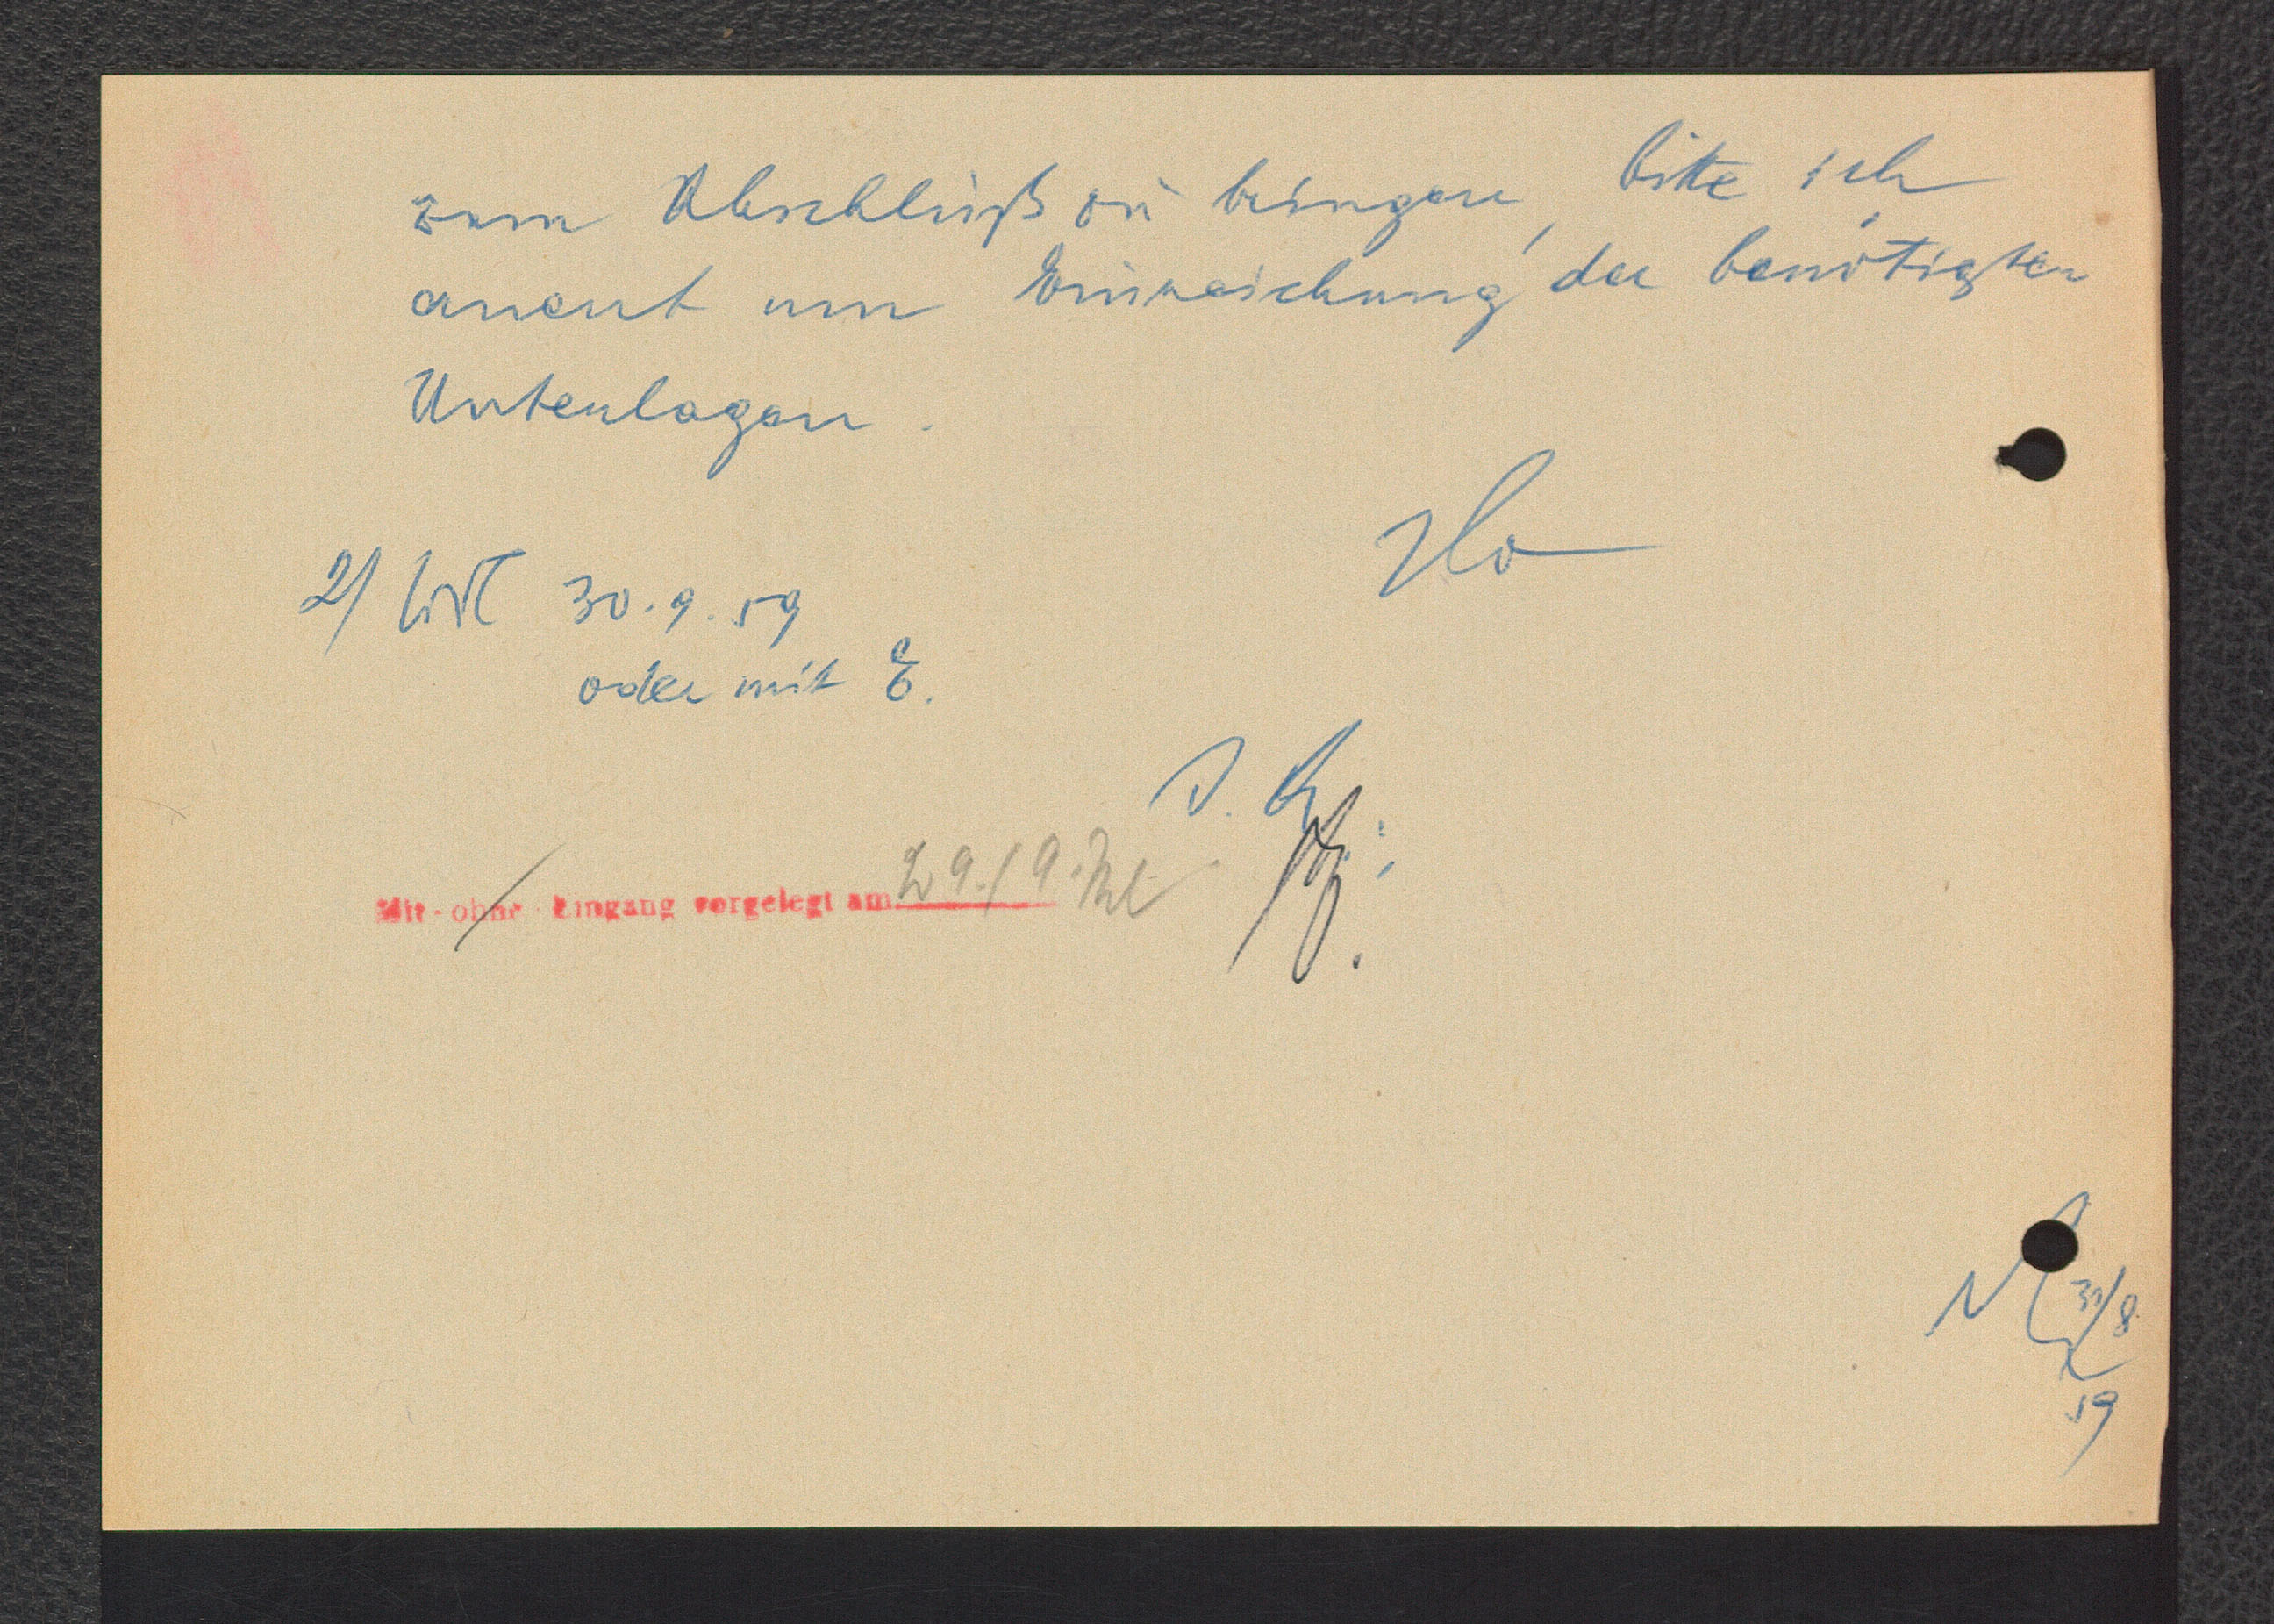 zum Abschluß zu bringen, bitte ich
erneut um Einreichung der benötigten
Unterlagen.
2/ WV 30.9.59
oder mit E.
Mit - ohne Eingang vorgelegt am 29./9.
31/8
59